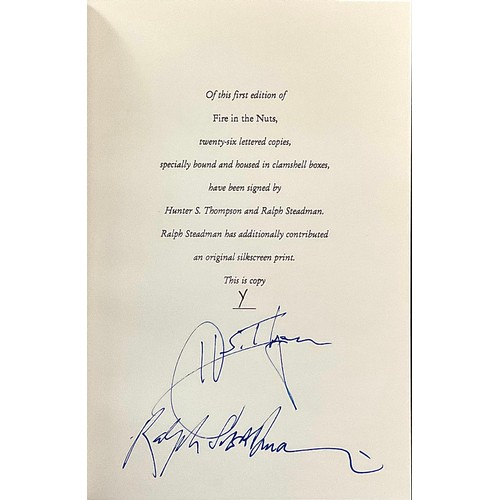 Of this first edition of
Fire in the Nuts,
twenty-six lettered copies,
specially bound and housed in clamshell boxes,
have been signed by
Hunter S. Thompson and Ralph Steadman.
Ralph Steadman has additionally contributed
an original silkscreen print.
This is copy
Y
Ralph Steadman